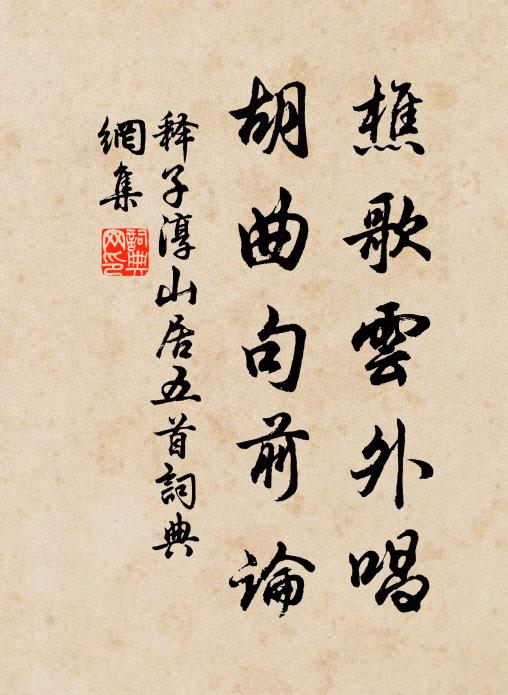 樵歌雲外唱
胡曲句前論
释子淳山居五首詞典
網集
詞典
网印